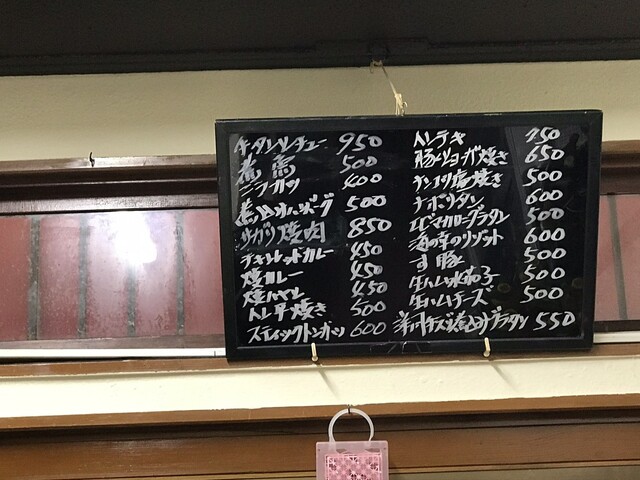 牛タンシチュー 950
500
ニラカツ 400
煮込みハンバーグ 500
サガリ焼肉 850
チキンカツカレー 450
焼カレー 450
焼ハヤシ 450
焼き 500
スティックトンカツ 600
トンテキ 750
豚ショーガ焼き 650
ゲンコツ塩焼き 500
ナポリタン 600
エビマカログラタン 500
海の幸のリゾット 600
す豚 500
生ハム水茄子 500
生ハムチーズ 500
グラタン 550